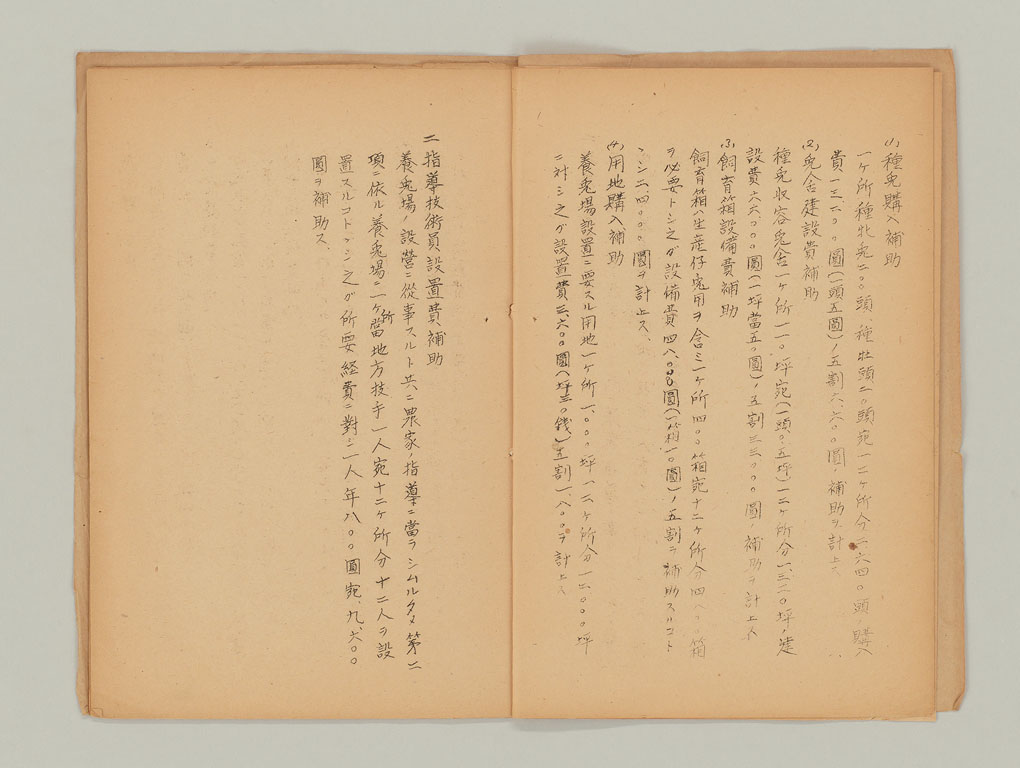 (1)種兎購入補助
一ヶ所種牝兎二〇〇頭、種牡頭二〇頭宛一二ヶ所分二、六四〇頭ノ購入
費一三、二〇〇圓(一頭五圓)ノ五割六、六〇〇圓ノ補助ヲ計上ス
(2)兎舎建設費補助
種兎收容兎舎一ヶ所一一〇坪宛(一頭〇.五坪)一二ヶ所分一、三二〇坪ノ建
設費六六、〇〇〇圓(一坪當五〇圓)ノ五割三三、〇〇〇圓ノ補助ヲ計上ス
(3)飼育箱設備費補助
飼育箱ハ生産仔兎用ヲ含ミ一ヶ所四〇〇箱宛十二ヶ所分四、八〇〇箱
ヲ必要トシ之ガ設備費四八、〇〇〇圓(一箱一〇圓)ノ五割ヲ補助スルコト
トシ二四、〇〇〇圓ヲ計上ス、
(4)用地購入補助
養兎場設置ニ要スル用地一ヶ所一、〇〇〇坪一二ヶ所分一二、〇〇〇坪
ニ対シ之ガ設置費三、六〇〇圓(坪三〇錢)五割一、八〇〇ヲ計上ス
二指導技術員設置費補助
養兎場ノ設營ニ從事スルト共ニ農家ノ指導ニ當ラシムルタメ第二
項ニ依ル養兎場ニ一ヶ所當地方技手一人宛十二ヶ所分十二人ヲ設
置スルコトヽシ之ガ所要経費ニ對シ一人年八〇〇圓宛、九、六〇〇
圓ヲ補助ス、